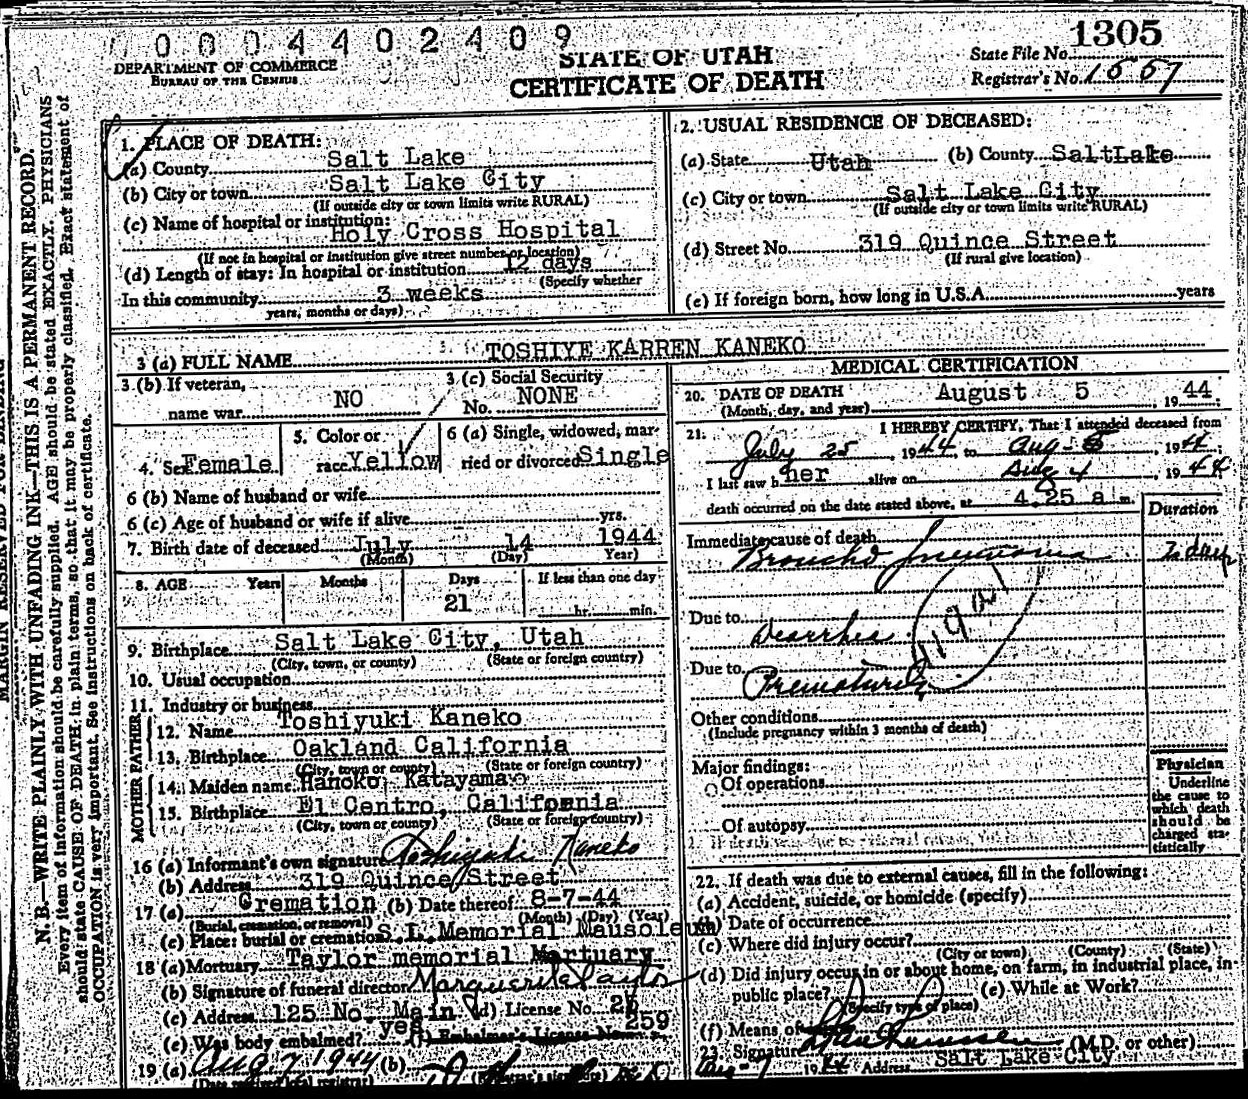 0 0 0 4 4 0 2 4 0 9
1305
STATE OF UTAH
State File No.
DEPARTMENT OF COMMERCE
BUREAU OF THE CENSUS
CERTIFICATE OF DEATH
Registrar's No. 1557
MARGIN RESERVED FOR BINDING
N. B.—WRITE PLAINLY WITH UNFADING INK—THIS IS A PERMANENT RECORD.
Every item of information should be carefully supplied. AGE should be stated EXACTLY. PHYSICIANS
should state CAUSE OF DEATH in plain terms, so that it may be properly classified. Exact statement of
OCCUPATION is very important. See instructions on back of certificate.
1. PLACE OF DEATH:
(a) County Salt Lake
(b) City or town Salt Lake City
(If outside city or town limits write RURAL)
(c) Name of hospital or institution:
Holy Cross Hospital
(If not in hospital or institution give street number or location)
(d) Length of stay: In hospital or institution 12 days
(Specify whether
In this community 3 weeks
years, months or days)
2. USUAL RESIDENCE OF DECEASED:
(a) State Utah (b) County Salt Lake
(c) City or town Salt Lake City
(If outside city or town limits write RURAL)
(d) Street No. 319 Quince Street
(If rural give location)
(e) If foreign born, how long in U.S.A. years
3 (a) FULL NAME TOSHIYE KARREN KANEKO
3 (b) If veteran,
name war NO
3 (c) Social Security
No. NONE
4. Sex Female
5. Color or
race Yellow
6 (a) Single, widowed, mar-
ried or divorced Single
6 (b) Name of husband or wife
6 (c) Age of husband or wife if alive yrs.
7. Birth date of deceased July 14 1944
(Month) (Day) Year)
8. AGE Years Months Days If less than one day
21 hr. min.
9. Birthplace Salt Lake City, Utah
(City, town, or county) (State or foreign country)
10. Usual occupation
11. Industry or business
FATHER
12. Name Toshiyuki Kaneko
13. Birthplace Oakland California
(City, town or county) (State or foreign country)
MOTHER
14. Maiden name Hanoko Katayama
15. Birthplace El Centro, California
(City, town or county) (State or foreign country)
16 (a) Informant's own signature Toshiyuki Kaneko
(b) Address 319 Quince Street
17 (a) Cremation (b) Date thereof 8-7-44
(Burial, cremation, or removal) (Month) (Day) (Year)
(c) Place: burial or cremation S.L. Memorial Mausoleum
18 (a) Mortuary Taylor memorial Mortuary
(b) Signature of funeral director Marguerite Taylor
(c) Address 125 No. Main (d) License No. 26
(e) Was body embalmed? yes (f) Embalmer's License No. 259
19 (a) Aug 7, 1944 (b)
(Date received local registrar) (Registrar's signature)
MEDICAL CERTIFICATION
20. DATE OF DEATH August 5, 1944
(Month, day, and year)
21. I HEREBY CERTIFY, That I attended deceased from
July 25, 1944, to Aug - 5, 1944
I last saw her alive on Aug 4 1944
death occurred on the date stated above, at 4.25 a m.
Duration
Immediate cause of death
Broncho pneumonia
Due to
Diarrhea
Due to
Prematurity
Other conditions
(Include pregnancy within 3 months of death)
Major findings:
Of operations
Of autopsy
Physician
Underline
the cause to
which death
should be
charged sta-
tistically
22. If death was due to external causes, fill in the following:
(a) Accident, suicide, or homicide (specify)
(b) Date of occurrence
(c) Where did injury occur?
(City or town) (County) (State)
(d) Did injury occur in or about home, on farm, in industrial place, in
public place? (e) While at Work?
(Specify type of place)
(f) Means of
23. Signature (M.D. or other)
Aug-7 1944 Address Salt Lake City